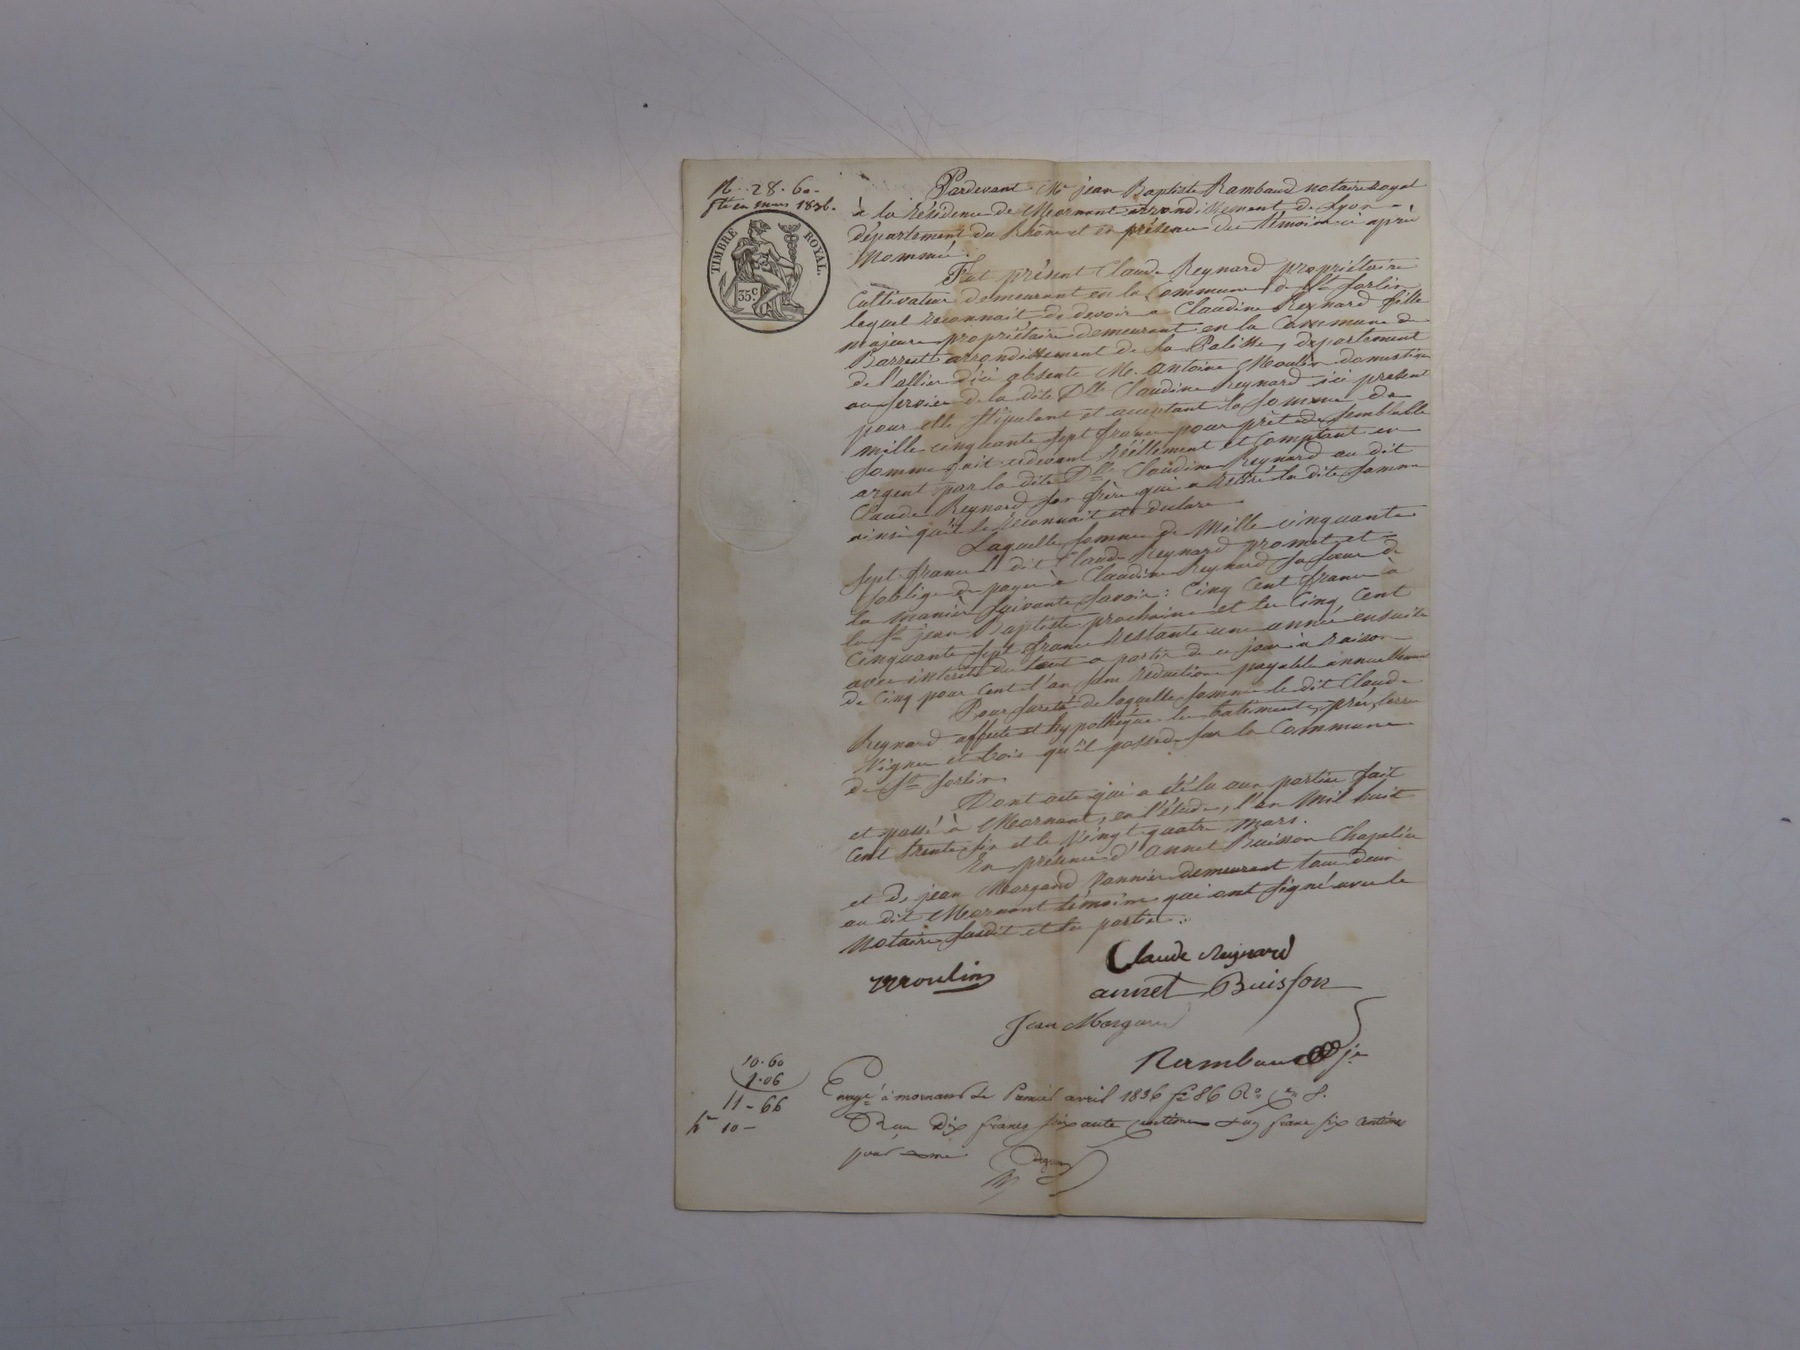 28.60
en mars 1836.
TIMBRE ROYAL.
35c
Pardevant Me jean Baptiste Rambaud notaire royal
à la résidence de Mornant arrondissement de Lyon
département du Rhône et en présence des témoins ci après
Nommés.
Fut présent Claude Reynard propriétaire
Cultivateur demeurant en la Commune de St Sorlin
lequel reconnait de devoir a Claudine Reynard fille
majeure propriétaire demeurant en la Commune de
Barrest arrondissement de La Palisse, département
de l'allier d'ici absente M. Antoine Moulin domestique
au service de la dite Dlle Claudine Reynard ici présent
pour elle stipulant et acceptant la somme de
mille cinquante sept francs pour prêt de semblable
somme fait cidevant réellement et comptant en
argent par la dite Dlle Claudine Reynard au dit
Claude Reynard son frère qui a retiré la dite somme
ainsi qu'il le reconnait et déclare
Laquelle somme de Mille cinquante
sept francs le dit Claude Reynard promet et
s'oblige de payer à Claudine Reynard sa sœur de
la manière suivante savoir: Cinq Cent francs à
la St jean Baptiste prochaine et les Cinq Cent
Cinquante sept francs restants une année ensuite
avec intérêts du tout a partir de ce jour à raison
de Cinq pour Cent l'an sans réduction payable annuellement
Pour sureté de laquelle somme le dit Claude
Reynard affecte et hypothèque les batiments, prés, terres
Vignes et bois qu'il possède sur la Commune
de St Sorlin.
Dont acte qui a été lu aux parties fait
et passé à Mornant, en l'étude, l'an Mil huit
Cent trente six et le Vingt quatre Mars.
En présence d'annet Buisson Chapelier
et de jean Morgand Vannier demeurant tous deux
au dit Mornant témoins qui ont signé avec le
Notaire susdit et les parties.
Moulin
Claude Reignard
annet Buisson
Jean Morgand
Rambaud je
10.60
1.06
11-66
10-
Enregé à mornant le Premier avril 1836 fo 86 Ro Ce 8.
Reçu Dix francs soixante centimes & un franc six centimes
pour